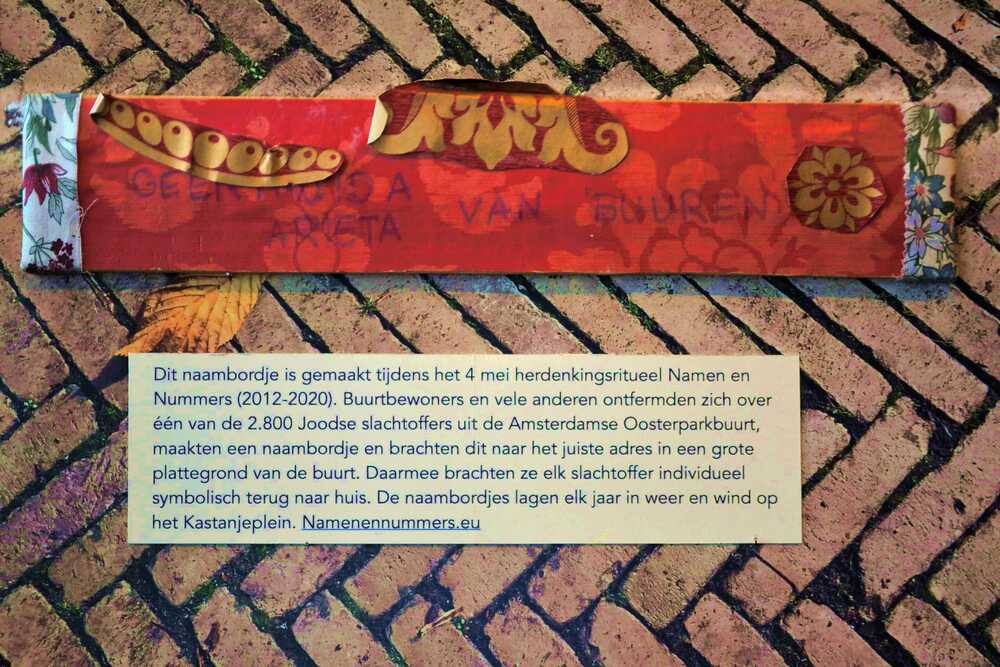 ARIETA VAN BUUREN
Dit naambordje is gemaakt tijdens het 4 mei herdenkingsritueel Namen en
Nummers (2012-2020). Buurtbewoners en vele anderen ontfermden zich over
één van de 2.800 Joodse slachtoffers uit de Amsterdamse Oosterparkbuurt,
maakten een naambordje en brachten dit naar het juiste adres in een grote
plattegrond van de buurt. Daarmee brachten ze elk slachtoffer individueel
symbolisch terug naar huis. De naambordjes lagen elk jaar in weer en wind op
het Kastanjeplein. Namenennummers.eu